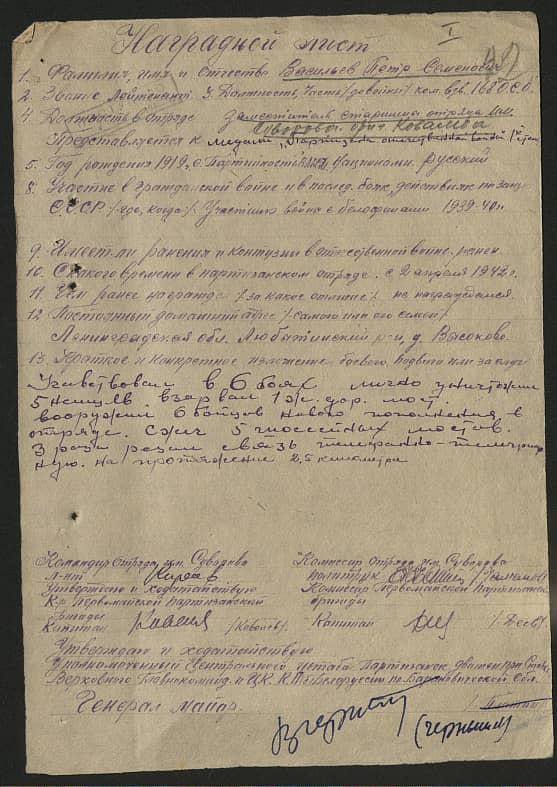 I
Наградной лист
1. Фамилия, имя и отчество Васильев Петр Семенович
2. Звание Лейтенант 3. Должность, часть
4. Должность в отряде Заместитель старшины отряда им.
Суворова Ковалева
Представляется к медали „Партизану отечественной войны" I степ
5. Год рождения 1919, 6. Партийность 7. Национальн. Русский
8. Участие в гражданской войне и в послед. боев. действиях по защ
СССР /где, когда/. Участник войны с белофинами 1939-40г.
9. Имеет ли ранения и контузии в отечественной войне. ранен
10. С какого времени в партизанском отряде. с 2 апреля 1942г.
11. Чем ранее награжден /за какое отличие/ не награждался.
12. Постоянный домашний адрес /самого или его семьи/
Ленинградская обл. Любытинский р-н, д. Высоково.
13. Краткое и конкретное изложение боевого подвига или заслуг
Участвовал в 6 боях лично уничтожил
5 немцев взорвал 1 ж. дор. мост.
вооружил 6 бойцов нового пополнения в
отряде. Сжег 5 шоссейных мостов.
3 раза резал связь телефонно-телеграф
ную. на протяжение 2,5 километра
Командир отряда им. Суворова
Л-нт
Утверждаю и ходатайствую
К-р Первомайской Партизанской
бригады
Капитан /Ковалев/
Комиссар отряда им. Суворова
политрук
Комиссар Первомайской Партизанской
бригады
Капитан
Утверждаю и ходатайствую
Уполномоченный Центрального штаба Партизанск. движен при Ставке
Верховного Главнокоманд. и ЦК КП/б/ Белоруссии по Барановической Обл.
Генерал майор.
(Чернышев)